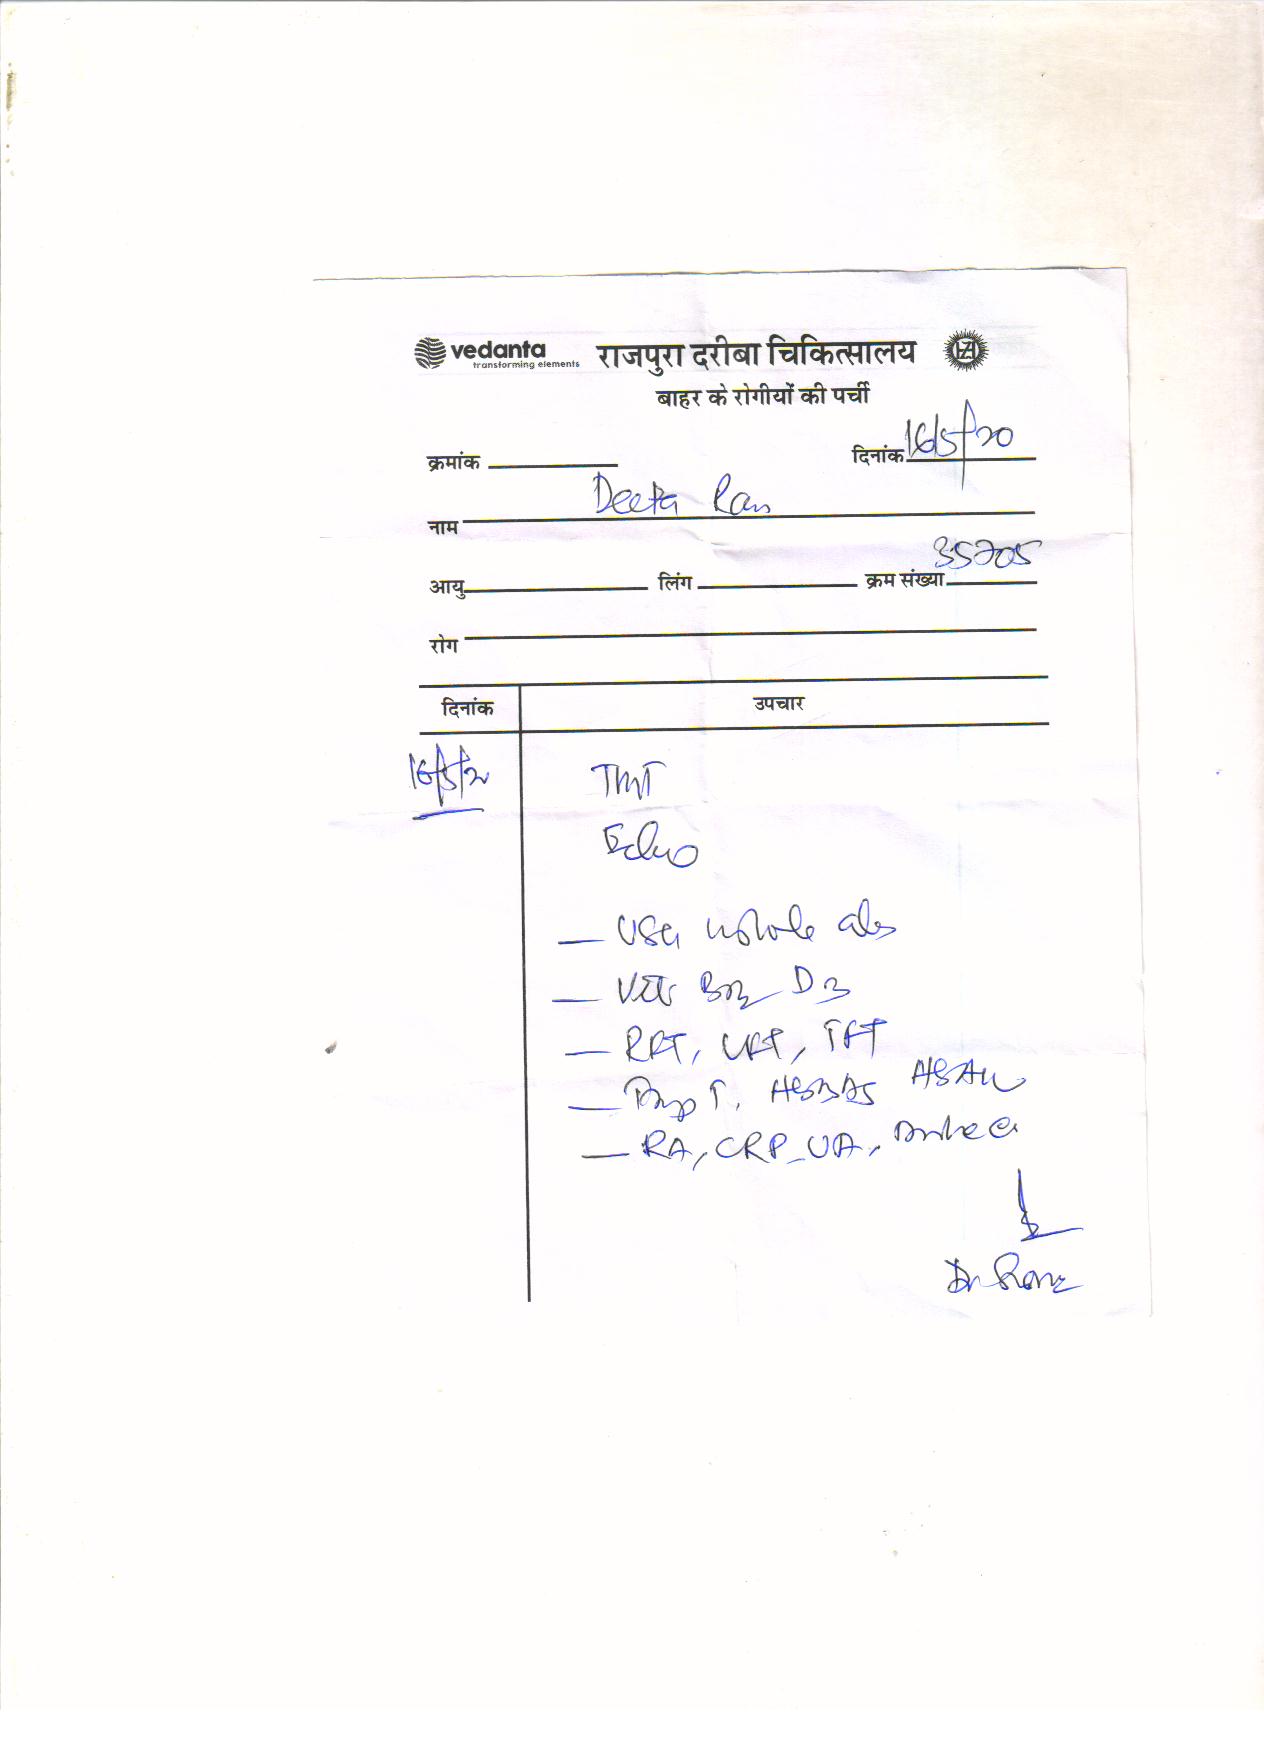 vedanta
transforming elements
राजपुरा दरीबा चिकित्सालय
HZL
बाहर के रोगीयों की पर्ची
क्रमांक दिनांक 16/5/20
नाम Deeta Ram
आयु लिंग क्रम संख्या 35205
रोग
दिनांक उपचार
16/5/20 TMT
Echo
— USG whole abs
— Vit B12 D3
— RFT, LFT, TFT
— T, HSBAS
— RA, CRP, UA,
Dr